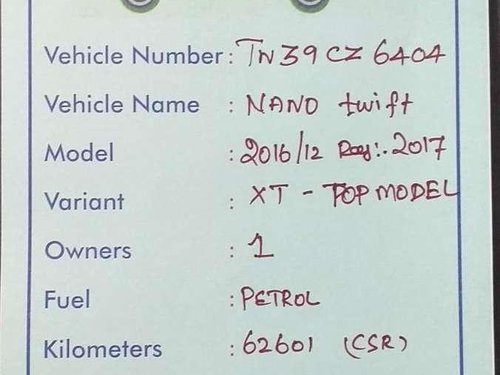 Vehicle Number : TN39CZ6404
Vehicle Name : NANO twift
Model : 2016/12 Reg:. 2017
Variant : XT - TOP MODEL
Owners : 1
Fuel : PETROL
Kilometers : 62601 (CSR)